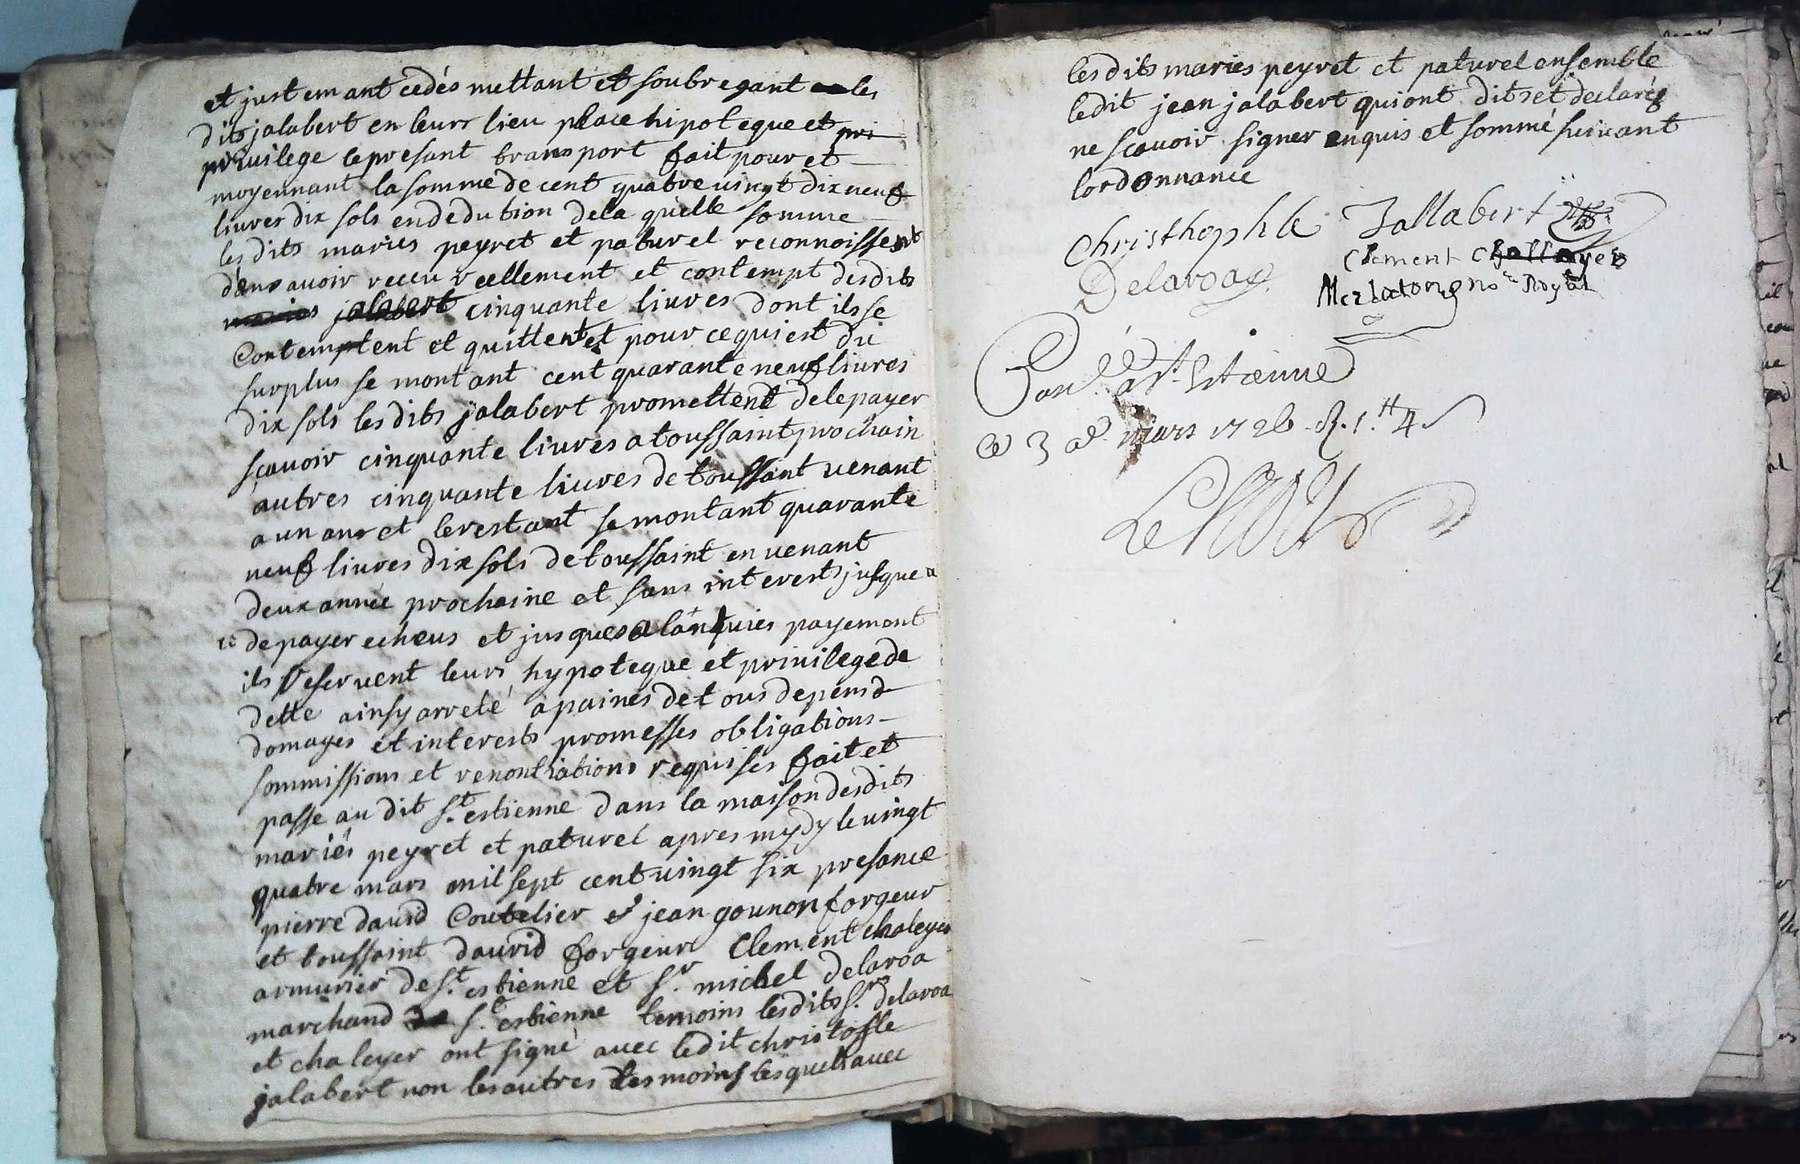 et justemant cedés mettant et soubregant les
dits jalabert en leurs lieu place hipoteque et pri
privilege le presant transport fait pour et
moyennant la somme de cent quatre vingt dix neuf
livres dix sols en dedution de la quelle somme
les dits mariés peyret et paturel reconnoissent
d'en avoir receu reellement et contempt desdits
mariés jalabert cinquante livres dont ils se
contemptent et quittent et pour ce qui est du
surplus se montant cent quarante neuf livres
dix sols les dits jalabert promettent de le payer
sçavoir cinquante livres a toussaint prochain
autres cinquante livres de toussaint venant
a un an et le restant se montant quarante
neuf livres dix sols de toussaint en venant
deux année prochaine et sans interest jusque a
depayer echeus et jusques a lantuies payement
ils reservent leurs hypoteque et privilege de
dette ainsy arreté a paines de tous depend
domages et interests promesses obligations
sommissions et renontiations requises fait et
passe au dit St. estienne dans la maison desdits
mariés peyret et paturel apres mydy le vingt
quatre mars mil sept cent vingt six presance
pierre david coutelier et jean gounon forgeur
et toussaint david forgeur clement chaleyer
armurier de St. estienne et Sr. michel delaroa
marchand de St. estienne temoins lesdits Srs. delaroa
et chaleyer ont signé avec ledit christofle
jalabert non les autres tesmoins lesquels avec
lesdits mariés peyret et paturel ensemble
ledit jean jalabert qui ont dits et declarés
ne sçavoir signer enquis et sommé suivant
lordonnance
Christhophle Jallabert
Clement Challeyer
Delaroa
nore Royal
a St. Etienne
ce 3 mars 1726 R. 1 tt 4 s